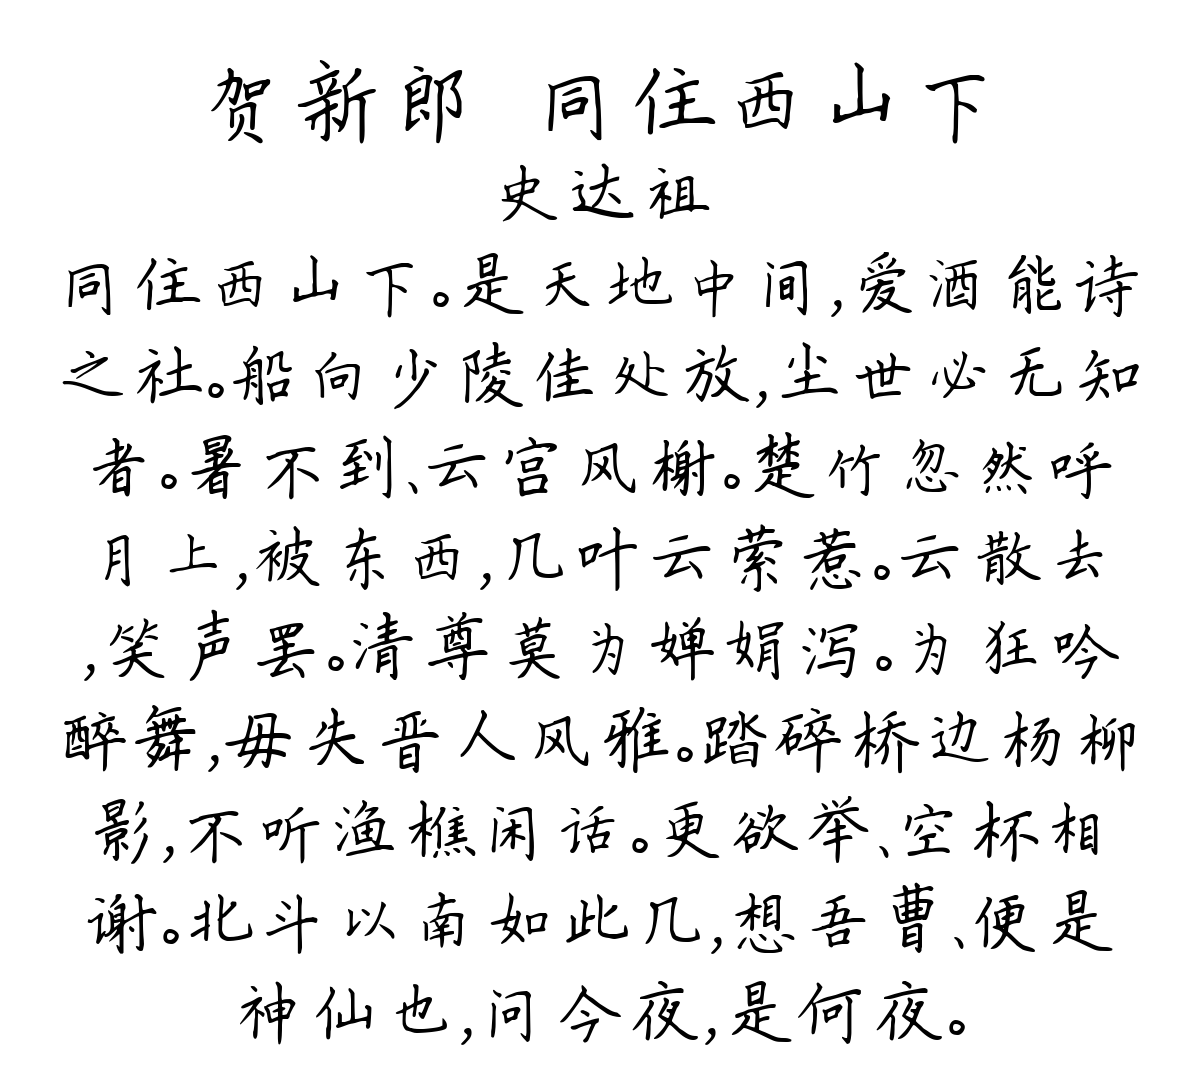 贺新郎 同住西山下
史达祖
同住西山下。是天地中间,爱酒能诗
之社。船向少陵佳处放,尘世必无知
者。暑不到、云宫风榭。楚竹忽然呼
月上,被东西,几叶云萦惹。云散去
,笑声罢。清尊莫为婵娟泻。为狂吟
醉舞,毋失晋人风雅。踏碎桥边杨柳
影,不听渔樵闲话。更欲举、空杯相
谢。北斗以南如此几,想吾曹、便是
神仙也,问今夜,是何夜。